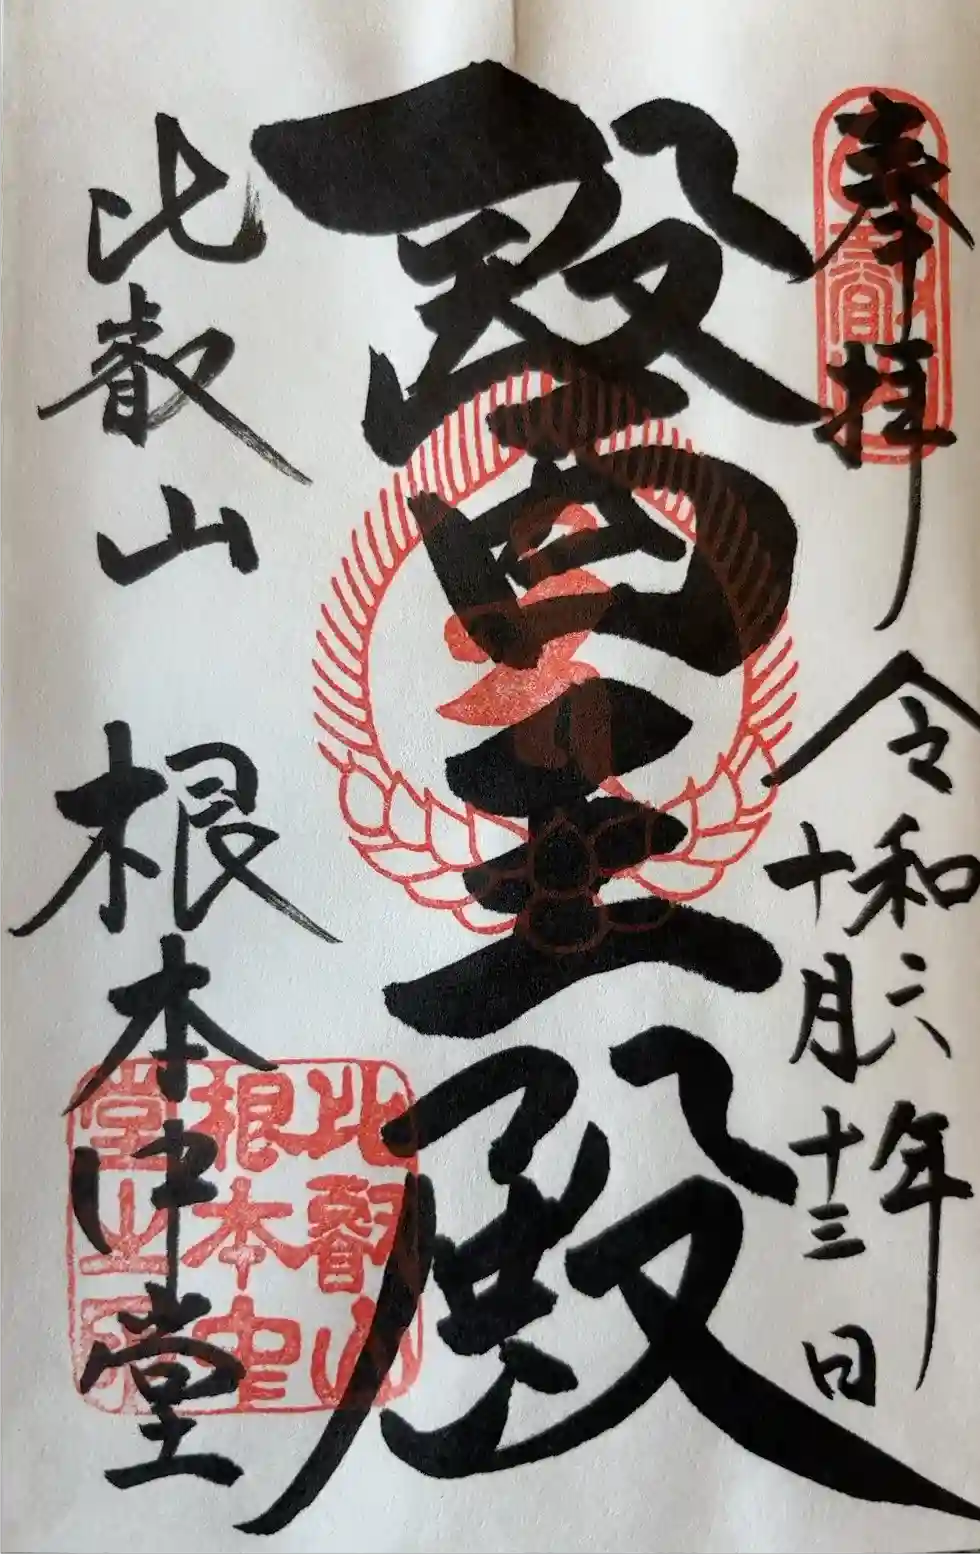 奉拝
令和六年
十月十三日
醫王殿
比叡山 根本中堂
比叡山
根本中
堂之印